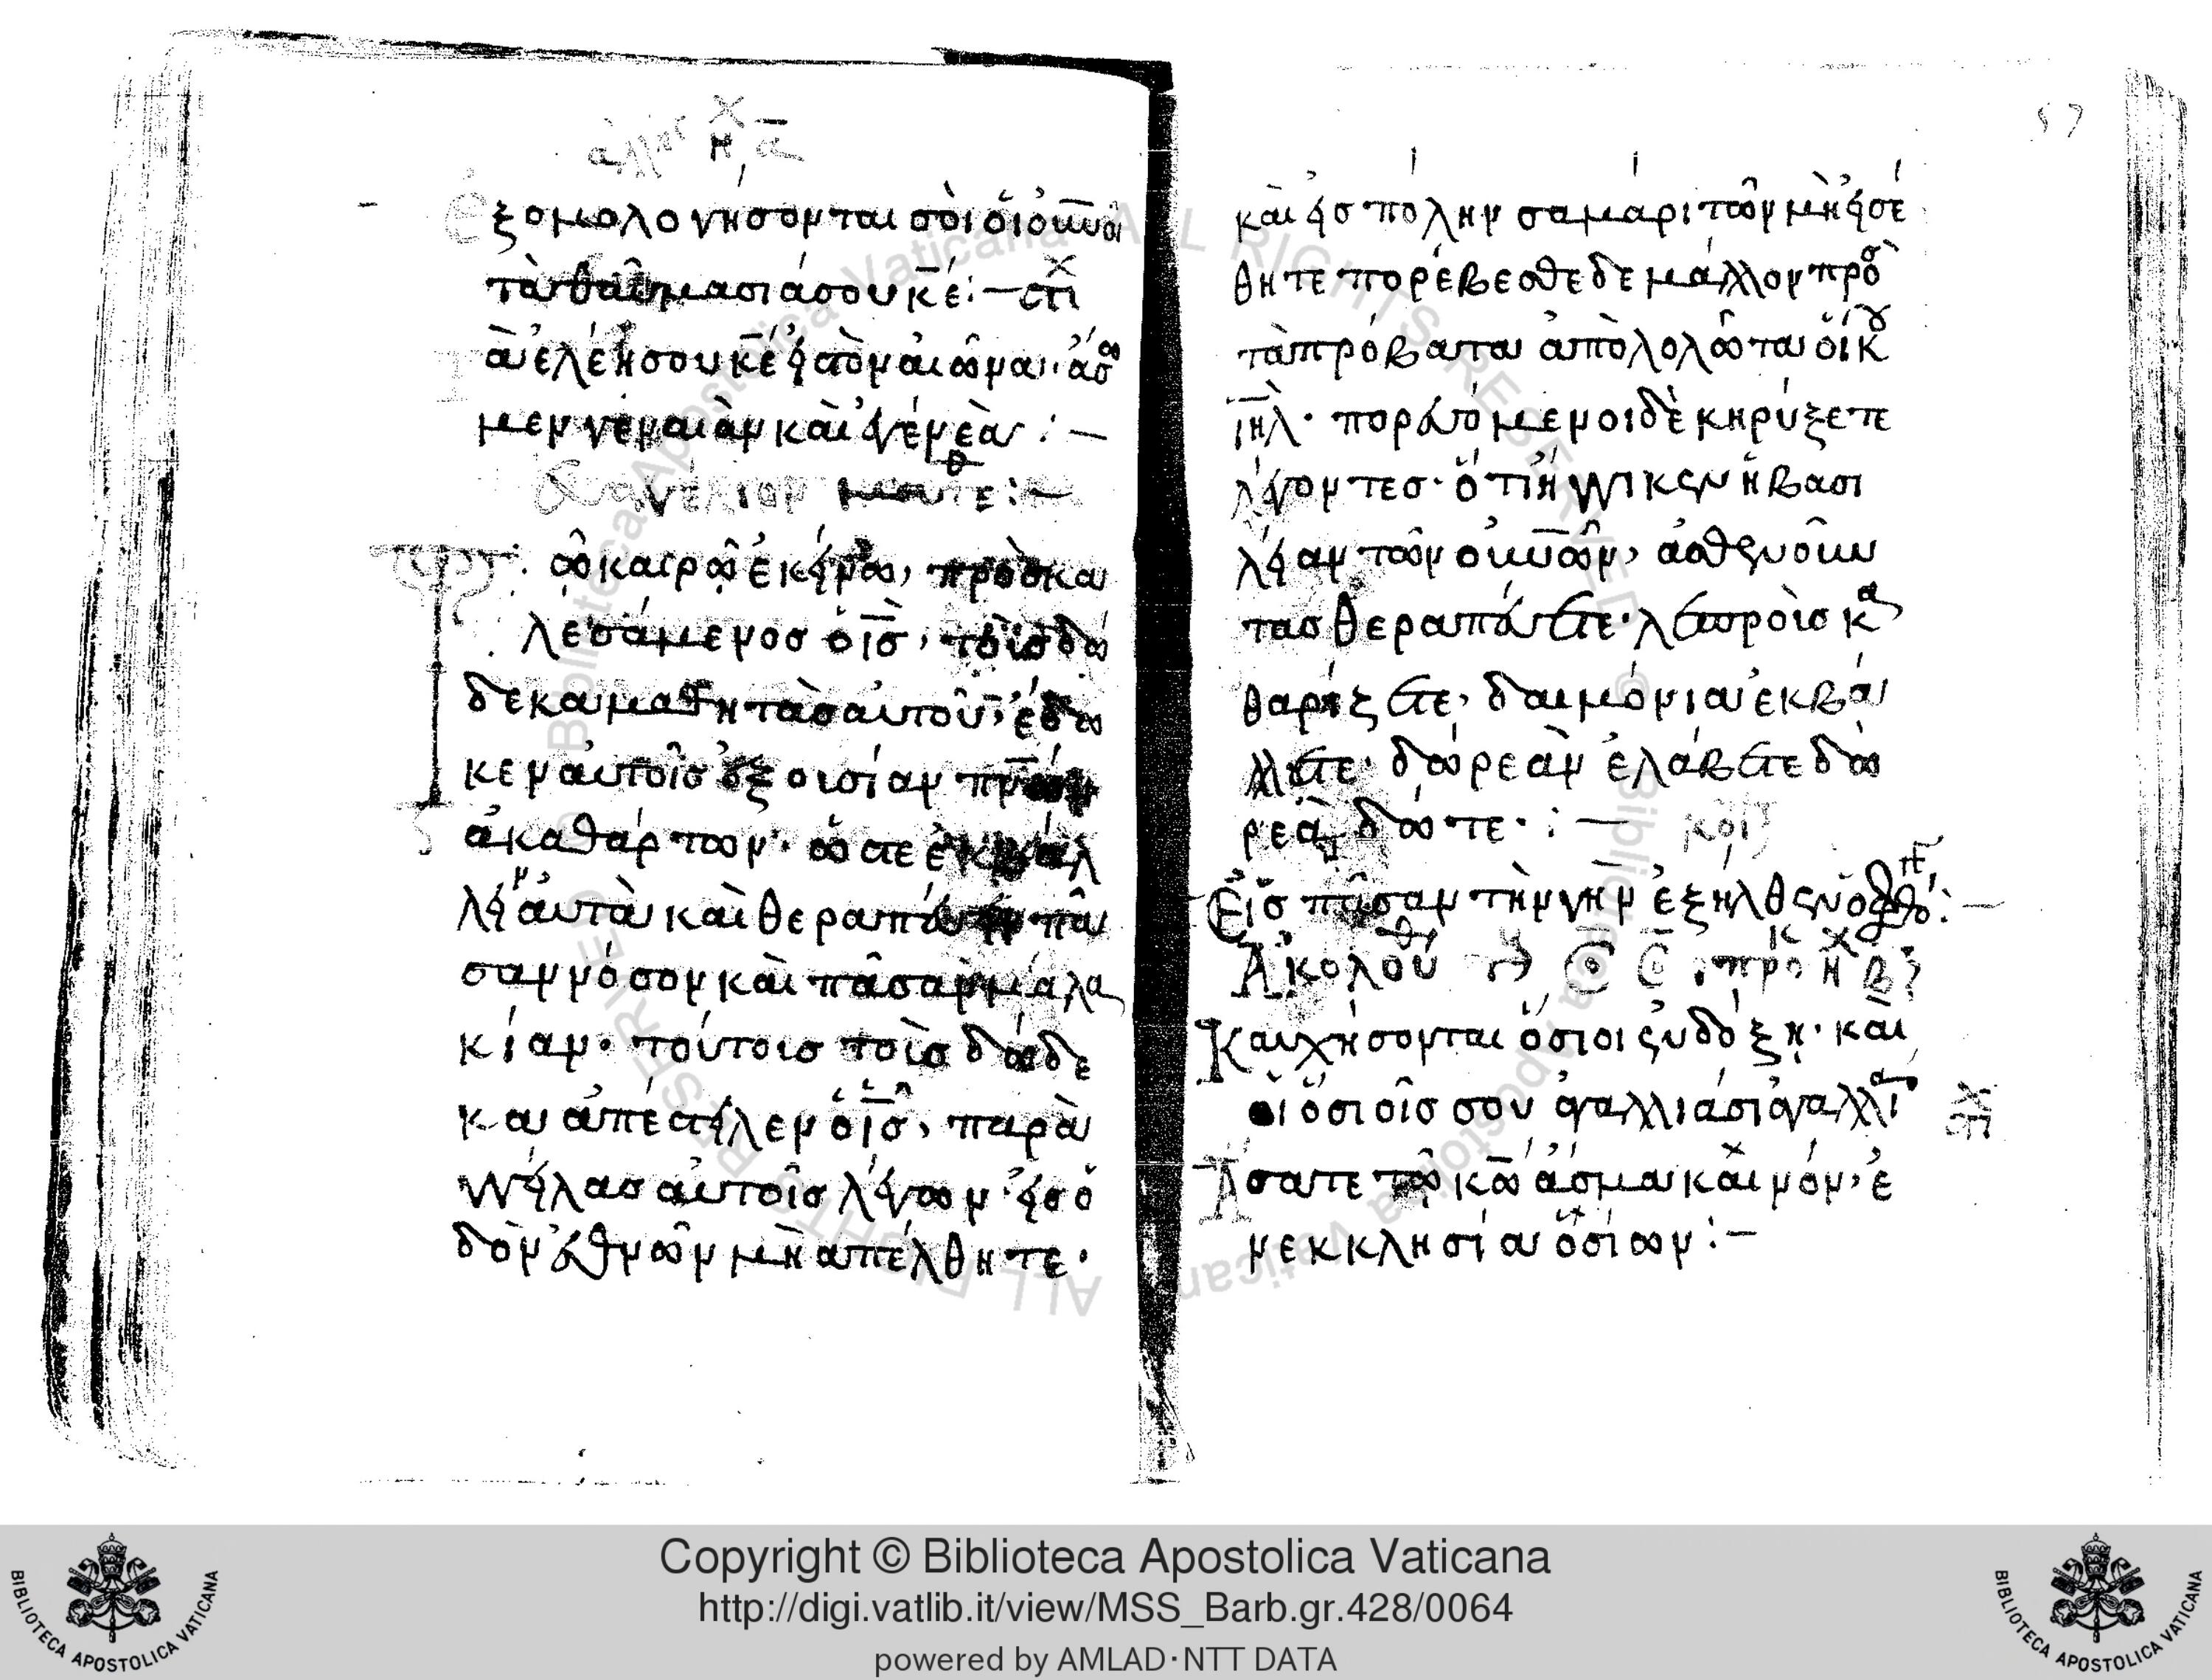 ἀλλος ἠχ ᾱ
ἐξομολογήσονται σὸι ὁι ὀυ̅ν̅οι
τὰ θαυμασιάσου κ̅έ:— στι
τὰ ἐλέησου κ̅έ εἰστὸν αιῶνα· ἀσω
μεν γενεαὰν καὶ γένεὰν :—
ἐυαγγέλιον ματθε:—
Τῶ καιρῶ ἐκείνω, πρὸσκα
λεσάμενοσ ὁ ι̅σ̅, τοὶσ δώ
δεκα μαθητὰσ ἀυτοῦ, ἔδω
κεν ἀυτοῖσ ἐξουσίαν πνατων
ἀκαθάρτων· ὥστε ἐκβάλ
λειν ἀυτὰ καὶ θεραπεύειν πᾶ
σαν νόσον καὶ πᾶσαν μαλα
κίαν· τούτουσ τοὺσ δώδε
κα ἀπέστειλεν ὁ ι̅σ̅, παρὰ
γγείλασ ἀυτοῖσ λέγων· εἰσ ὁ
δὸν ἐθνῶν μὴ απέλθητε·
57
καὶ εἰσ πόλην σαμάριτῶν μὴ εἰσέ
θητε πορέβεσθε δε μάλλον πρὸσ
τὰ πρόβατα ἀπὸλολῶτα ὅικου
ι̅η̅λ̅· πορευόμενοι δὲ κηρύξετε
λέγοντεσ· ὅτι ἤγγικεν ἡ βασι
λείαν τῶν ουνῶν, ἀσθενοῦν
τασ θεραπεύετε· λεπροὶσ κα
θαρίζετε, δαιμόνια ἐκβά
λλετε· δώρεὰν ἐλάβετε δώ
ρεὰν δώτε· :— κοι
Εἰσ πᾶσαν τὴν γῆν ἐξῆλθεν ὁ φθό:—
Ἀκολουθ
Καυχήσονται ὅσιοι ἐν δόξη· καὶ
οἱ ὅσιοῖσ σου ἀγαλλιάσι ἀγαλλια
στι
Ἄσατε τῶ κ̅ω̅ ἄσμα καιμόν, ἐ
νεκκλησία ὁσίων :—
Copyright © Biblioteca Apostolica Vaticana
http://digi.vatlib.it/view/MSS_Barb.gr.428/0064
powered by AMLAD·NTT DATA
BIBLIOTECA APOSTOLICA VATICANA
BIBLIOTECA APOSTOLICA VATICANA